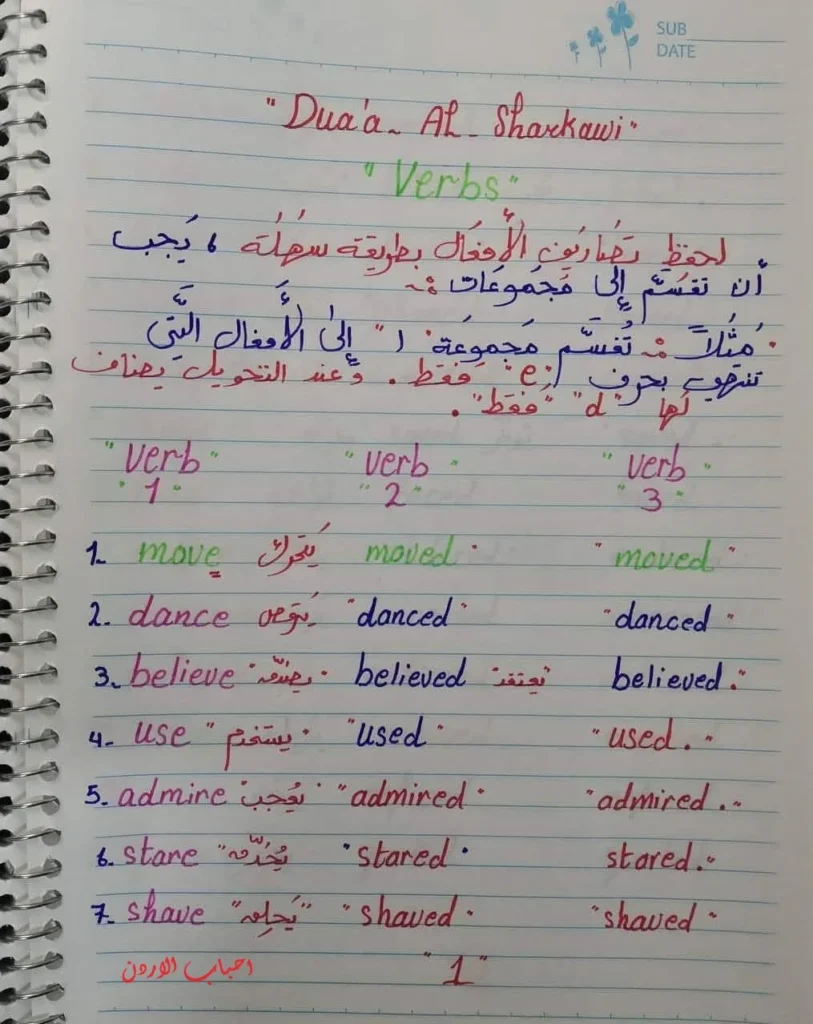 SUB
DATE
"Dua'a - Al - Sharkawi"
"Verbs"
لحفظ تَصَاريف الأَفعَال بطريقة سَهْلَة ، يَجب
أن تقسَّم إلى مَجمَوعَات :-
· مَثَلاً :- تُقسَّم مَجموعَة "1" إلى الأَفعَال الَّتي
تنتهي بحرف "e" فقط . وَعند التحويل يضاف
لَها "d" "فَقط" .
"verb" "verb" "verb"
"1" "2" "3"
1. move يَتحرك moved "moved"
2. dance يَرقص "danced" "danced"
3. believe "يصَدّق" believed "يعتقد" believed."
4- use "يستخدم" "used" "used."
5. admire يُعجب "admired" "admired."
6. stare "يُحَدّق" "stared" stared."
7- shave "يَحلِق" "shaved" "shaved"
احباب الاردن "1"